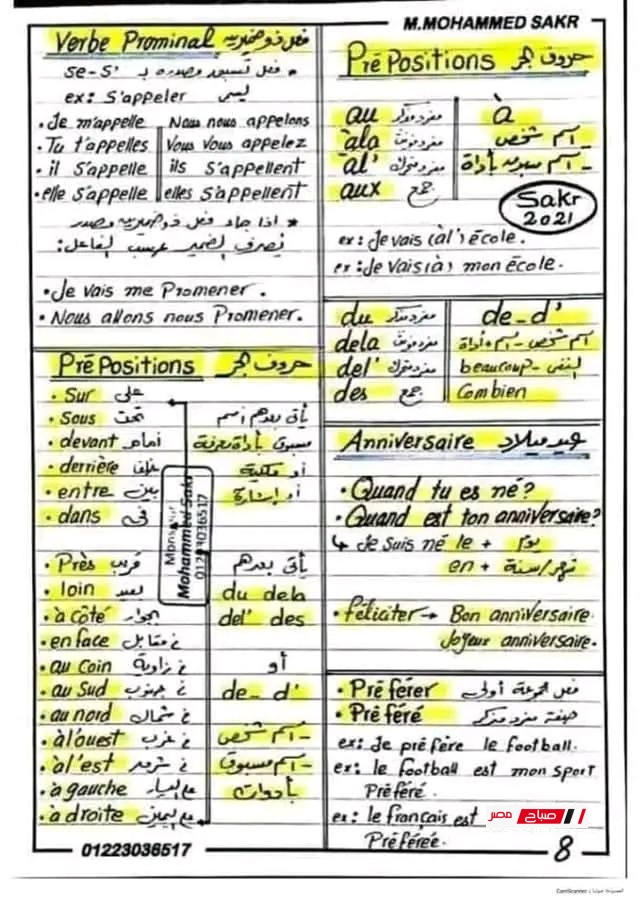 M.MOHAMMED SAKR
Verbe Prominal فعل ذو ضميرين
* فعل تسبق مصدره بـ se-s'
ex: S'appeler يسمى
• Je m'appelle Nous nous appelons
• Tu t'appelles Vous Vous appelez
• il S'appelle ils S'appellent
• elle S'appelle elles S'appellent
* اذا جاء فعل ذو ضميرين مصدر
يصرف الضمير حسب الفاعل:
• Je Vais me Promener.
• Nous allons nous Promener.
PréPositions حروف الجر
• Sur على
• Sous تحت
• devant أمام
• derrière خلف
• entre بين
• dans فى
يأتى بعدهم اسم
مسبوق بأداة معرفة
أو ملكية
أو إشارة
Monsieur
Mohammed Sakr
01223036517
• Près قريب
• loin بعيد
• à côté بجوار
• en face فى مقابل
• au Coin فى زاوية
• au Sud فى جنوب
• au nord فى شمال
• à l'ouest فى غرب
• à l'est فى شرق
• à gauche على اليسار
• à droite على اليمين
يأتى بعدهم
du dela
del' des
أو
de - d'
- اسم شخص
- اسم مسبوق
بأدوات
PréPositions حروف الجر
au مفرد مذكر
àla مفرد مؤنث
àl' مفرد متحرك
aux جمع
à
- اسم شخص
- اسم مسبوق بأداة
Sakr
2021
ex: Je vais (àl') école.
ex: Je Vais (à) mon école.
du مفرد مذكر
dela مفرد مؤنث
del' مفرد متحرك
des جمع
de - d'
اسم شخص - اسم + أداة
النفى - beaucoup
Combien
Anniversaire عيد ميلاد
• Quand tu es né?
• Quand est ton anniversaire?
↳ Je Suis né le + يوم
en + شهر/سنة
• féliciter → Bon anniversaire.
Joyeux anniversaire.
• Préférer فعل مجموعة أولى
• Préféré صفة مفرد مذكر
ex: Je préfère le football.
ex: le football est mon sport
Préféré.
ex: le français est
Préférée.
صباح مصر
01223036517
8
CamScanner